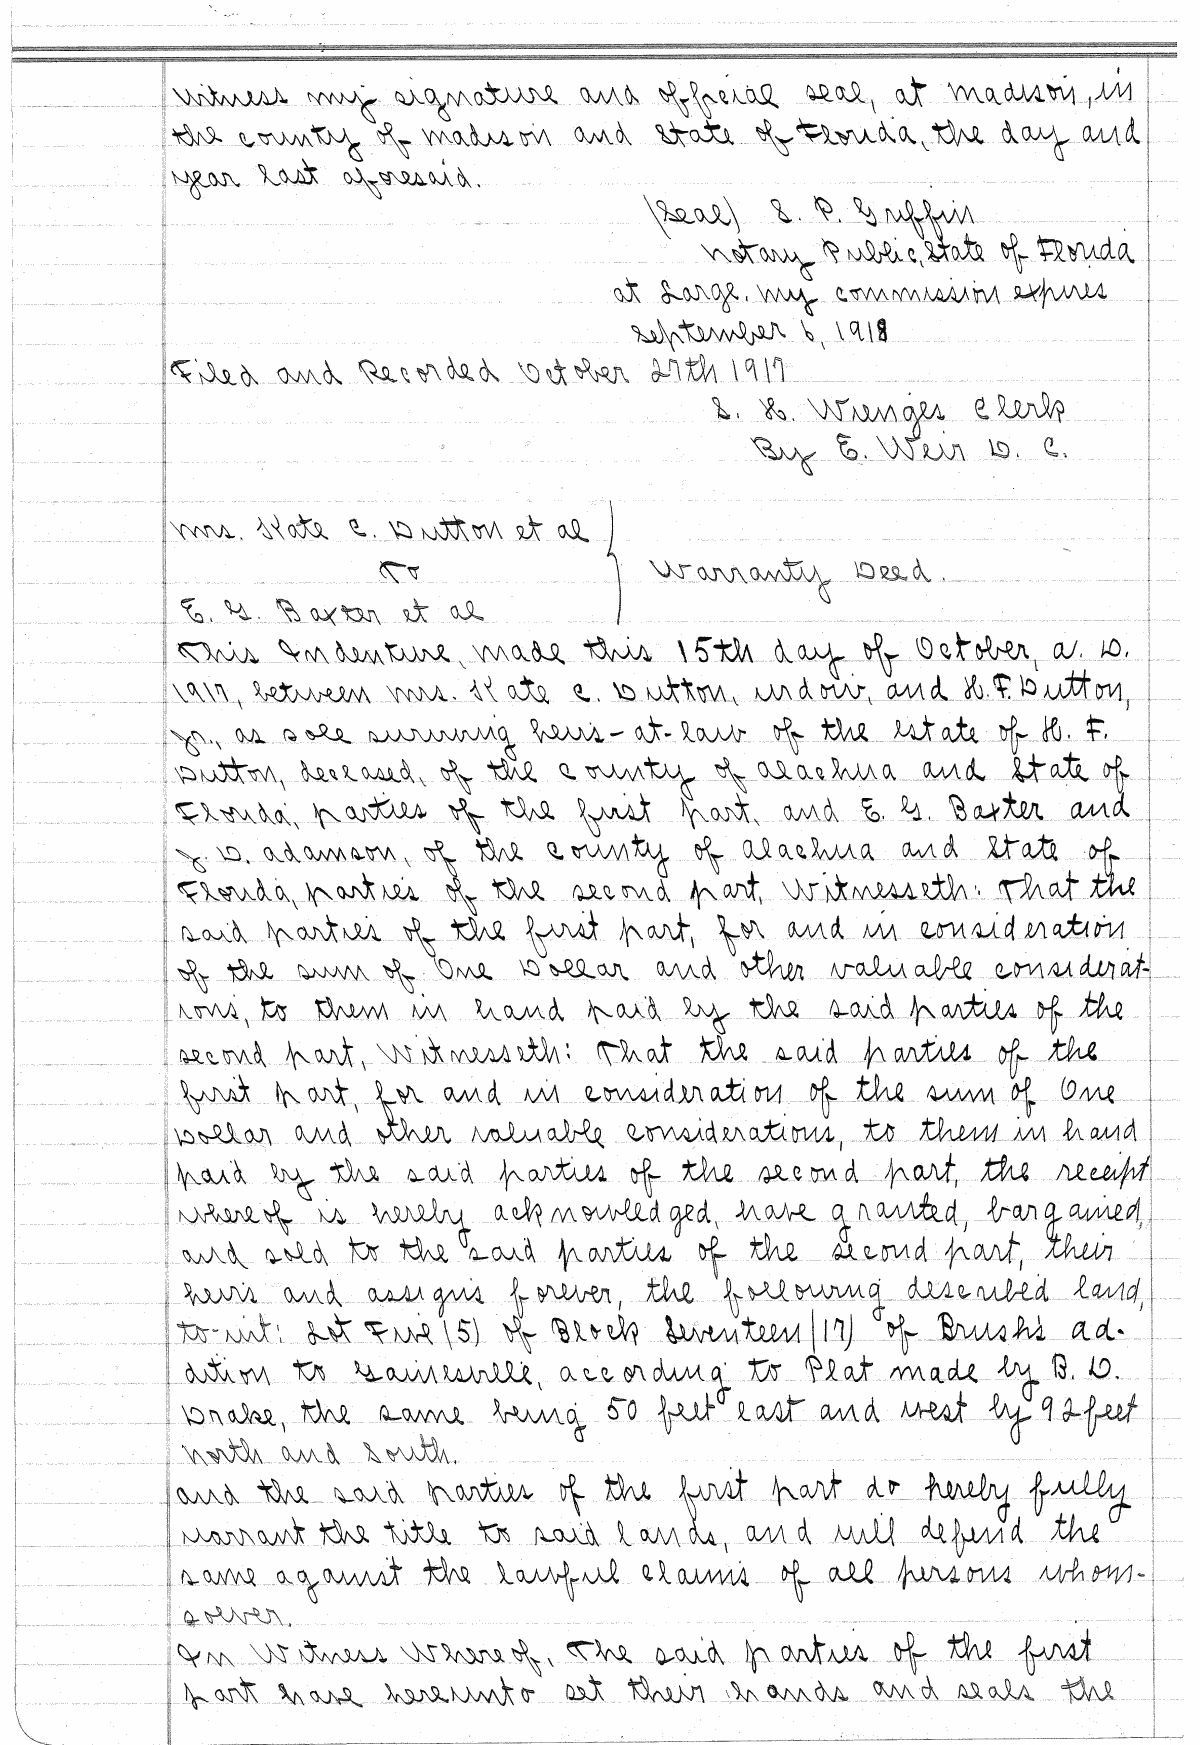 Witness my signature and official seal, at Madison, in
the county of Madison and State of Florida, the day and
year last aforesaid.
(Seal) S. P. Griffin
Notary Public, State of Florida
at Large. My commission expires
September 6, 1918
Filed and Recorded October 27th 1917
S. H. Wienges Clerk
By E. Weir D. C.
Mrs. Kate C. Dutton et al
To
Warranty Deed.
E. G. Baxter et al
This Indenture, made this 15th day of October, A. D.
1917, between Mrs. Kate C. Dutton, widow, and H. F. Dutton,
Jr., as sole surviving heirs-at-law of the estate of H. F.
Dutton, deceased, of the county of Alachua and State of
Florida, parties of the first part, and E. G. Baxter and
J. D. Adamson, of the county of Alachua and State of
Florida, parties of the second part, Witnesseth: That the
said parties of the first part, for and in consideration
of the sum of One Dollar and other valuable considerat-
ions, to them in hand paid by the said parties of the
second part, Witnesseth: That the said parties of the
first part, for and in consideration of the sum of One
Dollar and other valuable considerations, to them in hand
paid by the said parties of the second part, the receipt
whereof is hereby acknowledged, have granted, bargained,
and sold to the said parties of the second part, their
heirs and assigns forever, the following described land,
to-wit: Lot Five (5) of Block Seventeen (17) of Brush's ad-
dition to Gainesville, according to Plat made by B. D.
Drake, the same being 50 feet east and west by 92 feet
North and South.
And the said parties of the first part do hereby fully
warrant the title to said lands, and will defend the
same against the lawful claims of all persons whom-
soever.
In Witness Whereof, The said parties of the first
part have hereunto set their hands and seals the